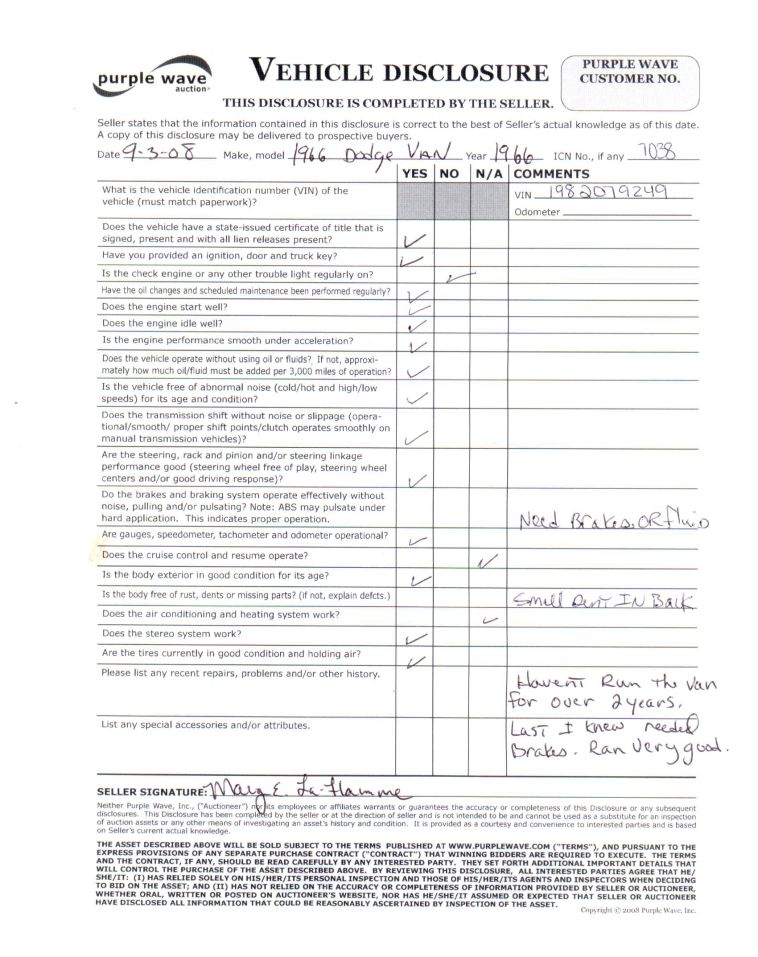 purple wave
auction
VEHICLE DISCLOSURE
PURPLE WAVE
CUSTOMER NO.
THIS DISCLOSURE IS COMPLETED BY THE SELLER.
Seller states that the information contained in this disclosure is correct to the best of Seller's actual knowledge as of this date.
A copy of this disclosure may be delivered to prospective buyers.
Date 9-3-08 Make, model 1966 Dodge VAN Year 1966 ICN No., if any 7038
YES NO N/A COMMENTS
What is the vehicle identification number (VIN) of the
vehicle (must match paperwork)?
VIN 1982079249
Odometer
Does the vehicle have a state-issued certificate of title that is
signed, present and with all lien releases present? ✓
Have you provided an ignition, door and truck key? ✓
Is the check engine or any other trouble light regularly on? ✓
Have the oil changes and scheduled maintenance been performed regularly? ✓
Does the engine start well? ✓
Does the engine idle well? ✓
Is the engine performance smooth under acceleration? ✓
Does the vehicle operate without using oil or fluids? If not, approxi-
mately how much oil/fluid must be added per 3,000 miles of operation? ✓
Is the vehicle free of abnormal noise (cold/hot and high/low
speeds) for its age and condition? ✓
Does the transmission shift without noise or slippage (opera-
tional/smooth/ proper shift points/clutch operates smoothly on
manual transmission vehicles)? ✓
Are the steering, rack and pinion and/or steering linkage
performance good (steering wheel free of play, steering wheel
centers and/or good driving response)? ✓
Do the brakes and braking system operate effectively without
noise, pulling and/or pulsating? Note: ABS may pulsate under
hard application. This indicates proper operation.
Need Brakes OR fluid
Are gauges, speedometer, tachometer and odometer operational? ✓
Does the cruise control and resume operate? ✓
Is the body exterior in good condition for its age? ✓
Is the body free of rust, dents or missing parts? (if not, explain defcts.)
Small Dent IN Back
Does the air conditioning and heating system work? ✓
Does the stereo system work? ✓
Are the tires currently in good condition and holding air? ✓
Please list any recent repairs, problems and/or other history.
Havent Run the van
for over 2 years.
List any special accessories and/or attributes.
Last I knew needed
Brakes. Ran Very good.
SELLER SIGNATURE: Mary E. La-flamme
Neither Purple Wave, Inc., ("Auctioneer") nor its employees or affiliates warrants or guarantees the accuracy or completeness of this Disclosure or any subsequent
disclosures. This Disclosure has been completed by the seller or at the direction of seller and is not intended to and cannot be used as a substitute for an inspection
of auction assets or any other means of investigating an asset's history and condition. It is provided as a courtesy and convenience to interested parties and is based
on Seller's current actual knowledge.
THE ASSET DESCRIBED ABOVE WILL BE SOLD SUBJECT TO THE TERMS PUBLISHED AT WWW.PURPLEWAVE.COM ("TERMS"), AND PURSUANT TO THE
EXPRESS PROVISIONS OF ANY SEPARATE PURCHASE CONTRACT ("CONTRACT") THAT WINNING BIDDERS ARE REQUIRED TO EXECUTE. THE TERMS
AND THE CONTRACT, IF ANY, SHOULD BE READ CAREFULLY BY ANY INTERESTED PARTY. THEY SET FORTH ADDITIONAL IMPORTANT DETAILS THAT
WILL CONTROL THE PURCHASE OF THE ASSET DESCRIBED ABOVE. BY REVIEWING THIS DISCLOSURE, ALL INTERESTED PARTIES AGREE THAT HE/
SHE/IT: (I) HAS RELIED SOLELY ON HIS/HER/ITS PERSONAL INSPECTION AND THOSE OF HIS/HER/ITS AGENTS AND INSPECTORS WHEN DECIDING
TO BID ON THE ASSET; AND (II) HAS NOT RELIED ON THE ACCURACY OR COMPLETENESS OF INFORMATION PROVIDED BY SELLER OR AUCTIONEER,
WHETHER ORAL, WRITTEN OR POSTED ON AUCTIONEER'S WEBSITE, NOR HAS HE/SHE/IT ASSUMED OR EXPECTED THAT SELLER OR AUCTIONEER
HAVE DISCLOSED ALL INFORMATION THAT COULD BE REASONABLY ASCERTAINED BY INSPECTION OF THE ASSET.
Copyright © 2008 Purple Wave, Inc.